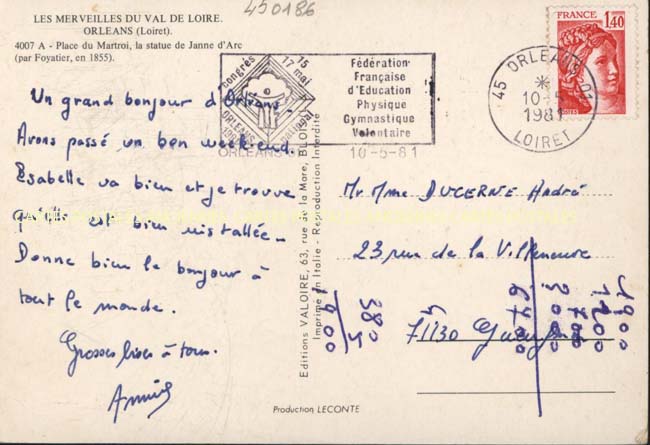 450186
LES MERVEILLES DU VAL DE LOIRE.
ORLEANS (Loiret).
4007 A - Place du Martroi, la statue de Janne d'Arc
(par Foyatier, en 1855).
Un grand bonjour d'Orléans.
Avons passé un bon week end.
Isabelle va bien et je trouve
qu'elle est bien installée _
Donne bien le bonjour à
tout le monde.
Grosses bises à tous.
Congrès
15
17 mai
ORLEANS
national
ORLEANS
Fédération
Française
d'Education
Physique
Gymnastique
Volontaire
10-5-81
45 ORLEANS 01
10-5
1981
LOIRET
FRANCE
1,40
Editions VALOIRE, 63, rue de la Mare, BLOIS
Imprimé en Italie - Reproduction Interdite
Mr Mme DUCERNE André
23 rue de la Villeneuve
71130
1900
1200
6700
380
5
1900
Production LECONTE